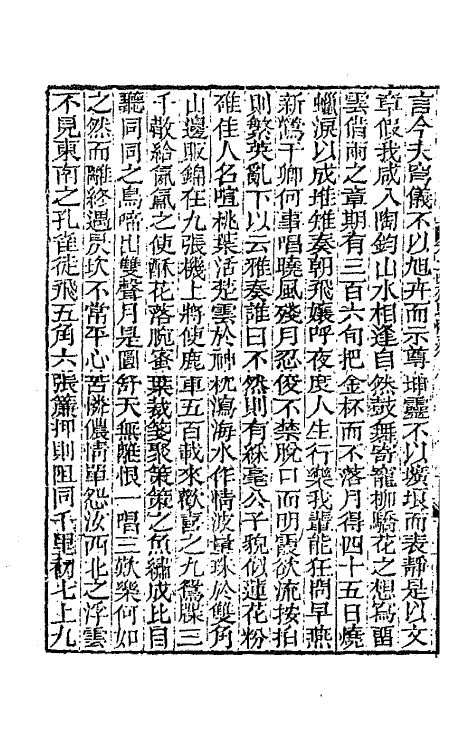 言今夫穹儀不以旭卉而示尊坤靈不以壙垠而表靜是以文
章假我咸入陶鈞山水相逢自然鼓舞寄寵柳驕花之想爲留
雲借雨之章期有三百六旬把金杯而不落月得四十五日燒
蠟淚以成堆雉奏朝飛孃呼夜度人生行樂我輩能狂問早燕
新鶯干卿何事唱曉風殘月忍俊不禁脫口而明霞欲流按拍
則繁英亂下以云雅奏誰曰不然則有穌毫公子貌似蓮花粉
碓佳人名喧桃葉活楚雲於神枕瀉海水作情波量珠於雙角
山邊販錦在九張機上將使鹿車五百載來歡喜之九駕牒三
千散給氤氳之使酥花落腕蜜葉裁箋聚策策之魚繡成比目
聽同同之鳥啼出雙聲月是圓舒天無離恨一唱三歎樂何如
之然而離終遇 坎不常平心苦憐儂情單怨汝西北之浮雲
不見東南之孔雀徒飛五角六張簾押則阻同千里初七上九